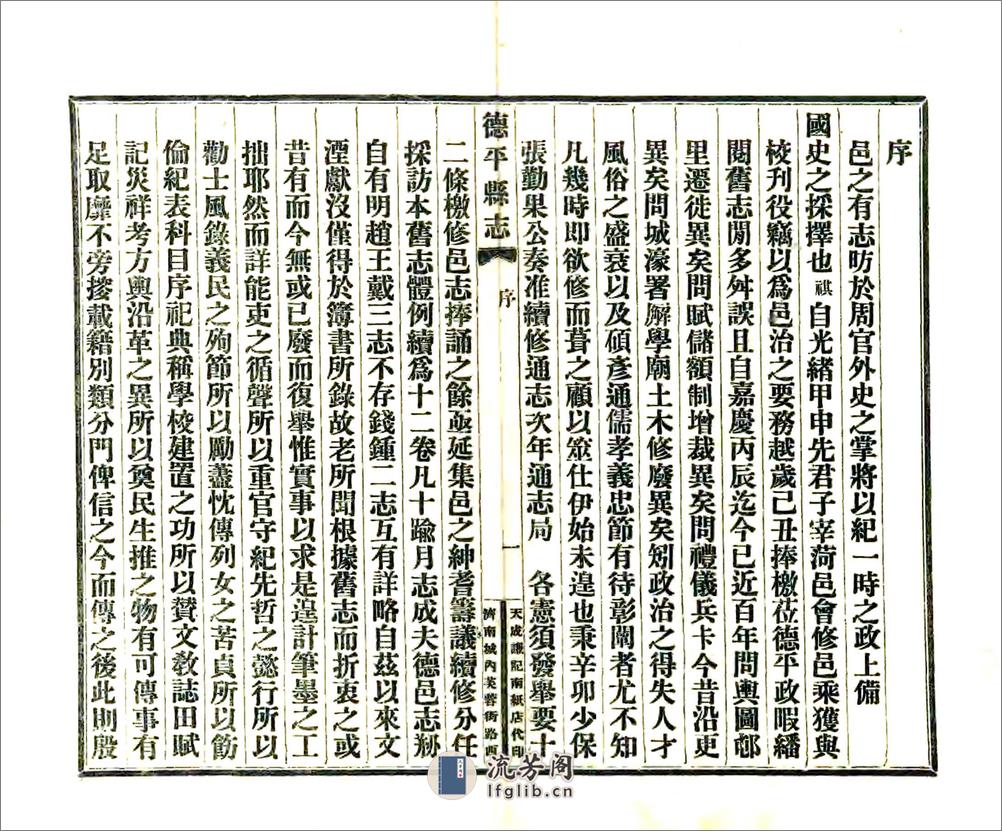 序
邑之有志昉於周官外史之掌將以紀一時之政上備
國史之採擇也祺自光緒甲申先君子宰菏邑會修邑乘獲與
校刊役竊以爲邑治之要務越歲己丑捧檄莅德平政暇繙
閱舊志閒多舛誤且自嘉慶丙辰迄今已近百年問輿圖郡
里遷徙異矣問賦儲額制增裁異矣問禮儀兵卡今昔沿更
異矣問城濠署廨學廟土木修廢異矣矧政治之得失人才
風俗之盛衰以及碩彥通儒孝義忠節有待彰闡者尤不知
凡幾時即欲修而葺之顧以筮仕伊始未遑也秉辛卯少保
張勤果公奏准續修通志次年通志局 各憲須發舉要十
德平縣志
序
一
天成謙記南紙店代印
濟南城內芙蓉街路西
二條檄修邑志捧誦之餘亟延集邑之紳耆籌議續修分任
採訪本舊志體例續爲十二卷凡十踰月志成夫德邑志剏
自有明趙王戴三志不存錢鍾二志互有詳略自茲以來文
湮獻沒僅得於簿書所錄故老所聞根據舊志而折衷之或
昔有而今無或已廢而復舉惟實事以求是遑計筆墨之工
拙耶然而詳能吏之循聲所以重官守紀先哲之懿行所以
勸士風錄義民之殉節所以勵蓋忱傳列女之苦貞所以笏
倫紀表科目序祀典稱學校建置之功所以贊文敎誌田賦
記災祥考方輿沿革之異所以奠民生推之物有可傳事有
足取靡不旁搜載籍別類分門俾信之今而傳之後此則殷
流芳阁
lfglib.cn